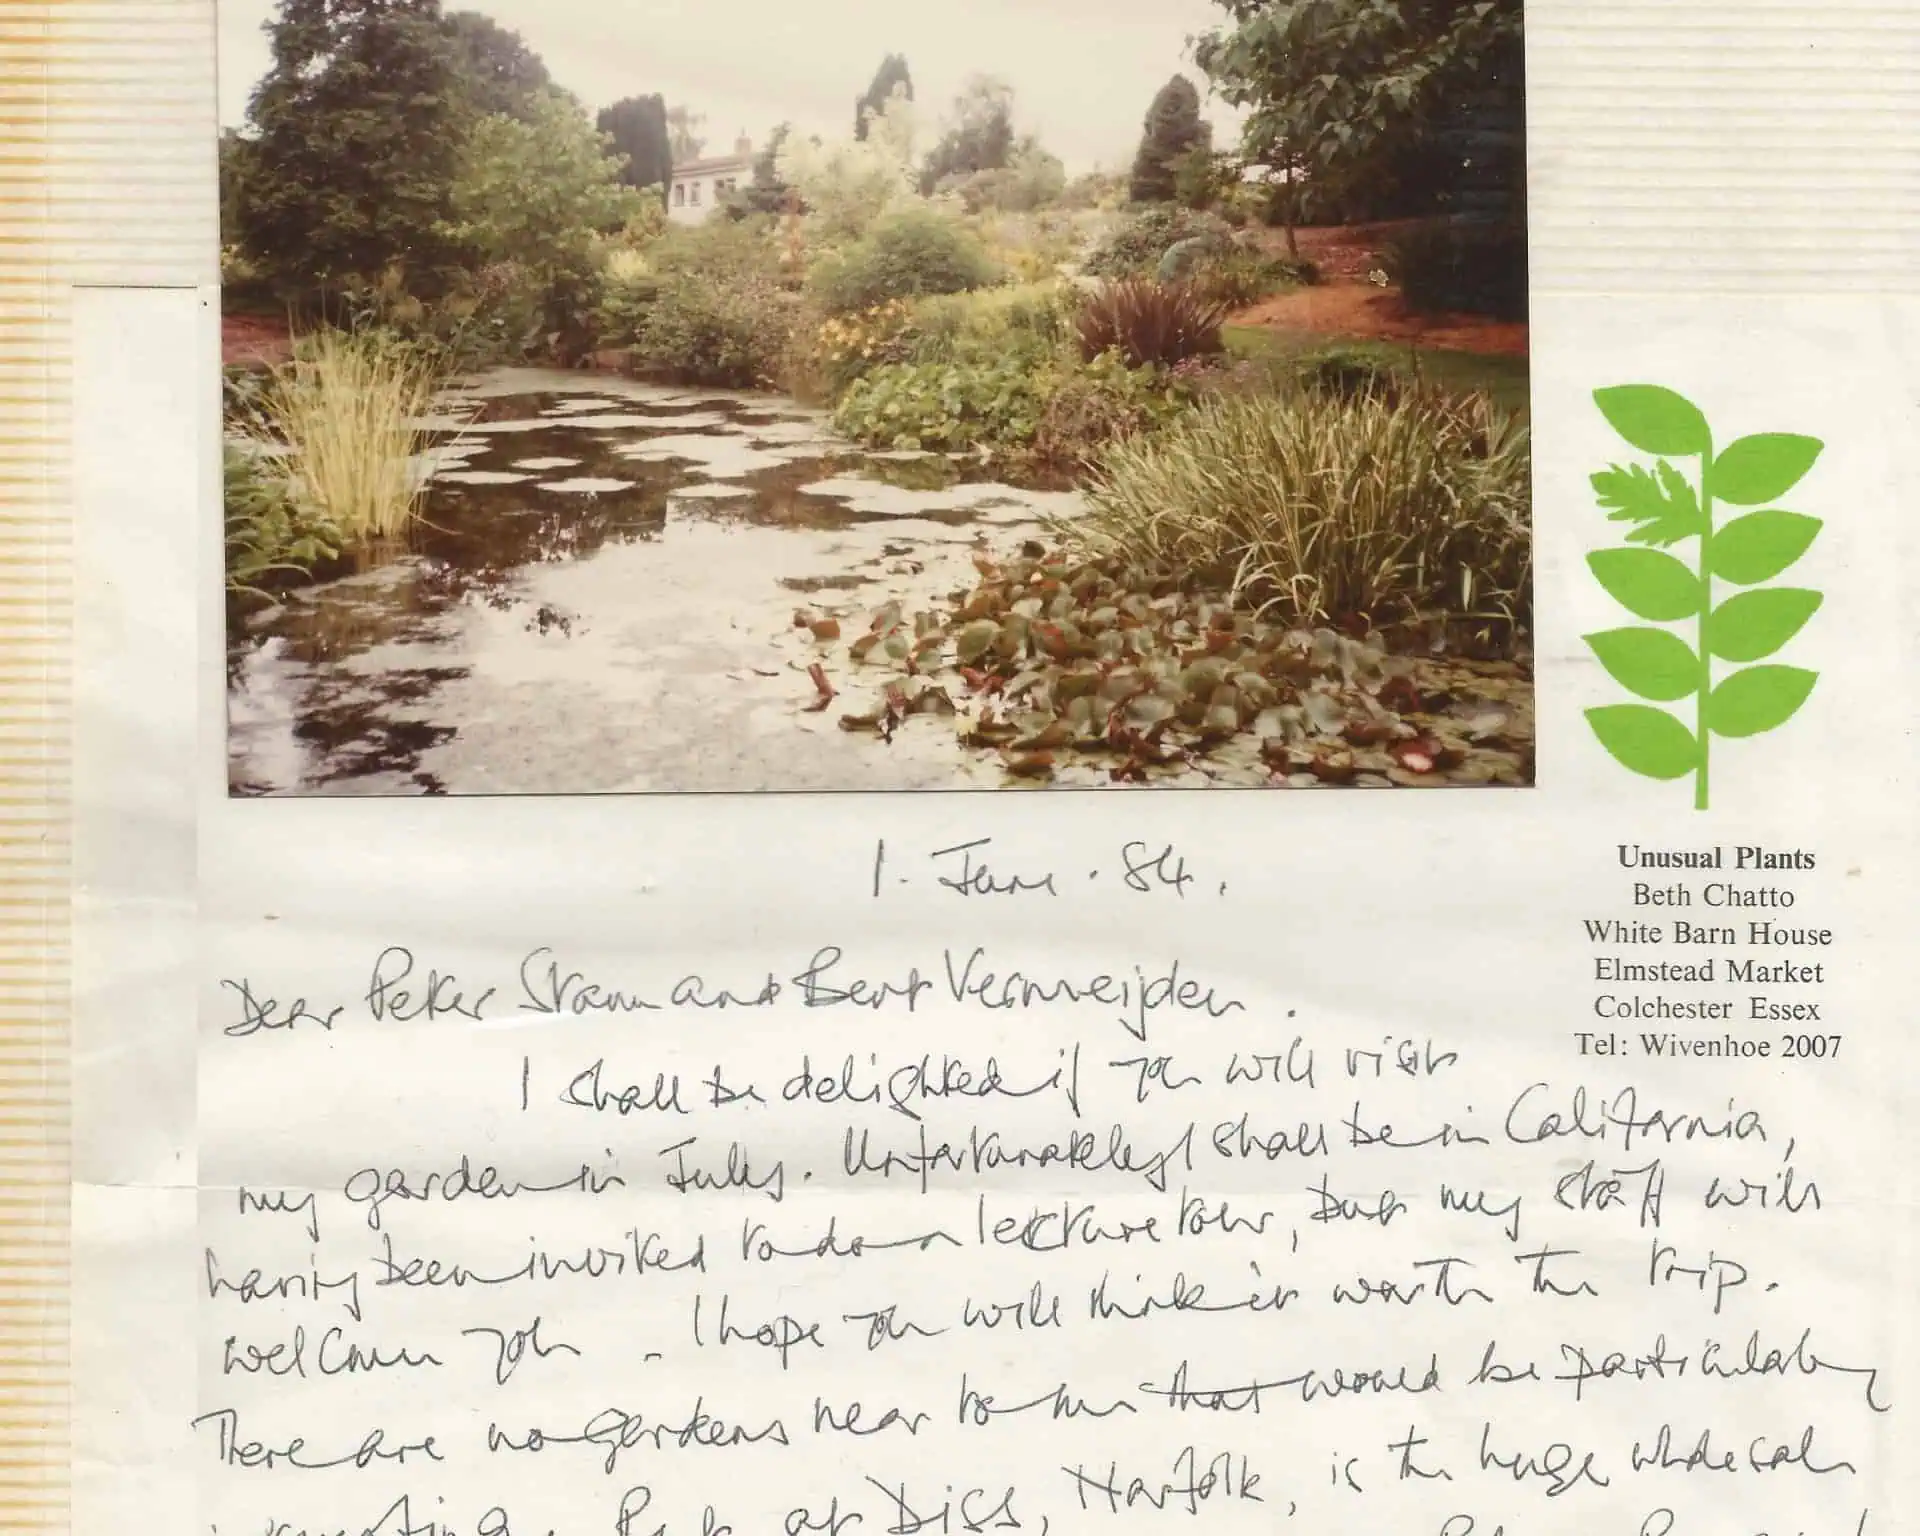 Unusual Plants
Beth Chatto
White Barn House
Elmstead Market
Colchester Essex
Tel: Wivenhoe 2007
1. June . 84 .
Dear Peter Stam and Bert Vermeijden .
I shall be delighted if you will visit
my garden in July. Unfortunately I shall be in California,
having been invited to do a lecture tour, but my staff will
welcome you . I hope you will think it worth the trip.
There are no gardens near to me that would be particularly
interesting. at Diss, Norfolk, is the huge wholesale